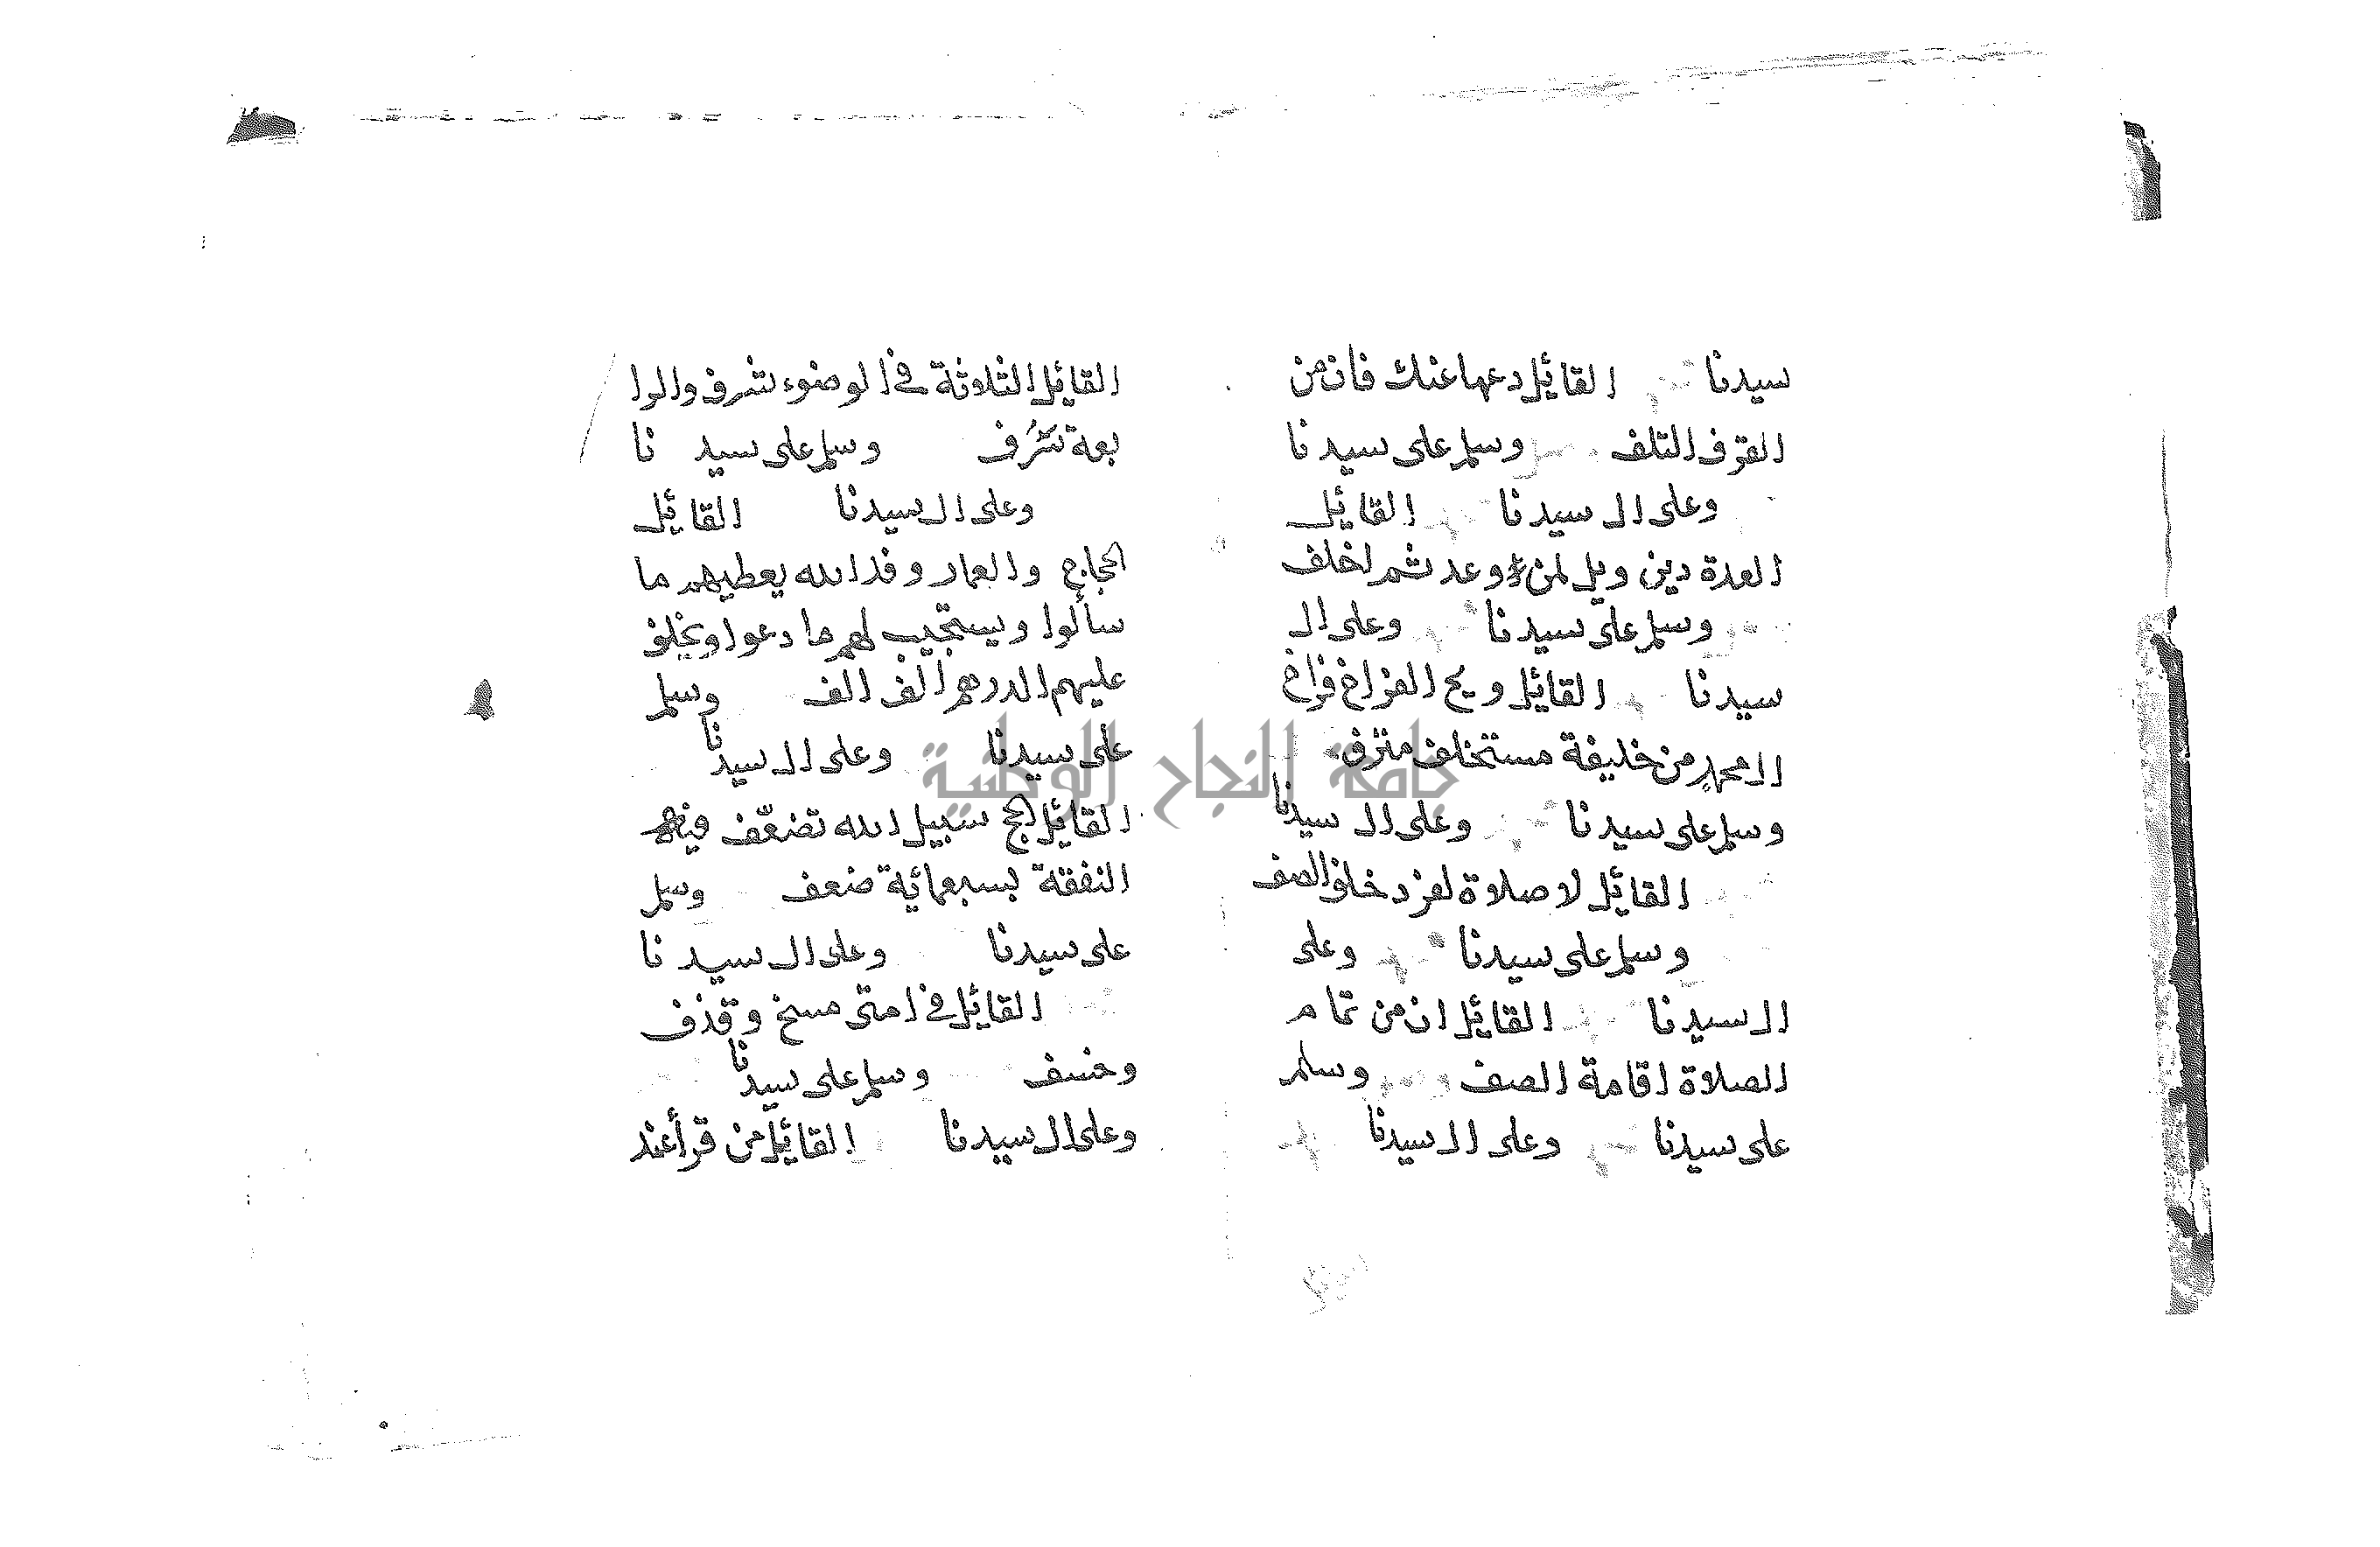 سيدنا القائل دعها عنك فان من
القرف التلف وسلم على سيدنا
وعلى ال سيدنا القائل
العدة دين ويل لمن وعد ثم اخلف
وسلم على سيدنا وعلى ال
سيدنا القائل ويح الفراخ فراخ
ال محمد من خليفة مستخلف مترف
وسلم على سيدنا وعلى ال سيدنا
القائل لا صلاة لفرد خلف الصف
وسلم على سيدنا وعلى
ال سيدنا القائل ان من تمام
الصلاة اقامة الصف وسلم
على سيدنا وعلى ال سيدنا
القائل الثلاثة في الوضوء شرف والرا
بعة سرف وسلم على سيدنا
وعلى ال سيدنا القائل
الحجاج والعمار وفد الله يعطيهم ما
سألوا ويستجيب لهم ما دعوا ويخلف
عليهم الدرهم الف الف وسلم
على سيدنا وعلى ال سيدنا
القائل الحج سبيل الله تضعّف فيه
النفقة بسبعمائة ضعف وسلم
على سيدنا وعلى ال سيدنا
القائل في امتى مسخ وقذف
وخسف وسلم على سيدنا
وعلى ال سيدنا القائل من قرأ عند
جامعة النجاح الوطنية